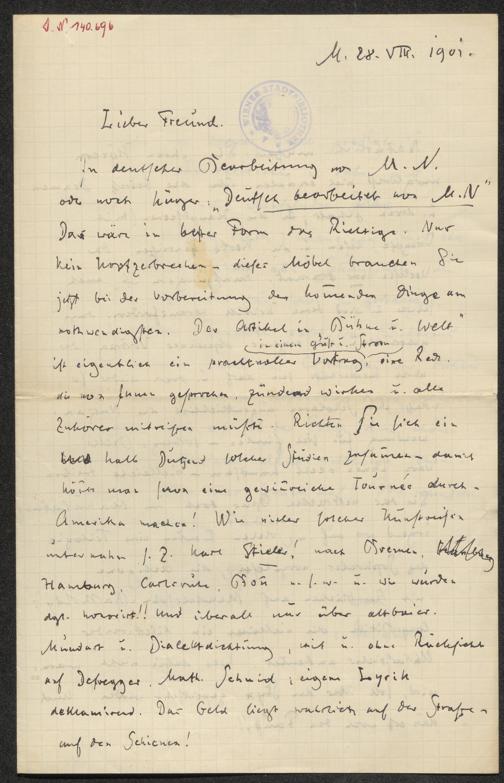 J. N. 140.696
M. 28. VIII. 1901.
WIENER STADTBIBLIOTHEK
Lieber Freund.
In deutscher Bearbeitung von M. N.
oder noch kürzer: „Deutsch bearbeitet von M. N"
Das wäre in bester Form das Richtige. Nur
kein Kopfzerbrechen – dieses Möbel brauchen Sie
jetzt bei der Vorbereitung der kommenden Dinge am
nothwendigsten. Der Artikel in „Bühne u. Welt"
in einem Guß u. Strom
ist eigentlich ein prachtvoller Vortrag, eine Rede.
die von Ihnen gesprochen, zündend wirken u. alle
Zuhörer mitreißen müßte. Richten Sie sich ein
halb Dutzend solcher Studien zusammen – damit
könnte man schon eine gewinnreiche Tournée durch
Amerika machen! Wie vieler solcher Kunstreisen
unternahm s. Z. Karl Stieler! nach Bremen,
Hamburg, Carlsruhe, Bonn u. s. w. u. wie wurden
dgl. honorirt!! Und überall nur über altbaier.
Mundart u. Dialektdichtung, mit u. ohne Rücksicht
auf Defregger, Math. Schmid, eigene Lyrik
deklamirend. Das Geld liegt wahrlich auf der Straße –
auf den Schienen!